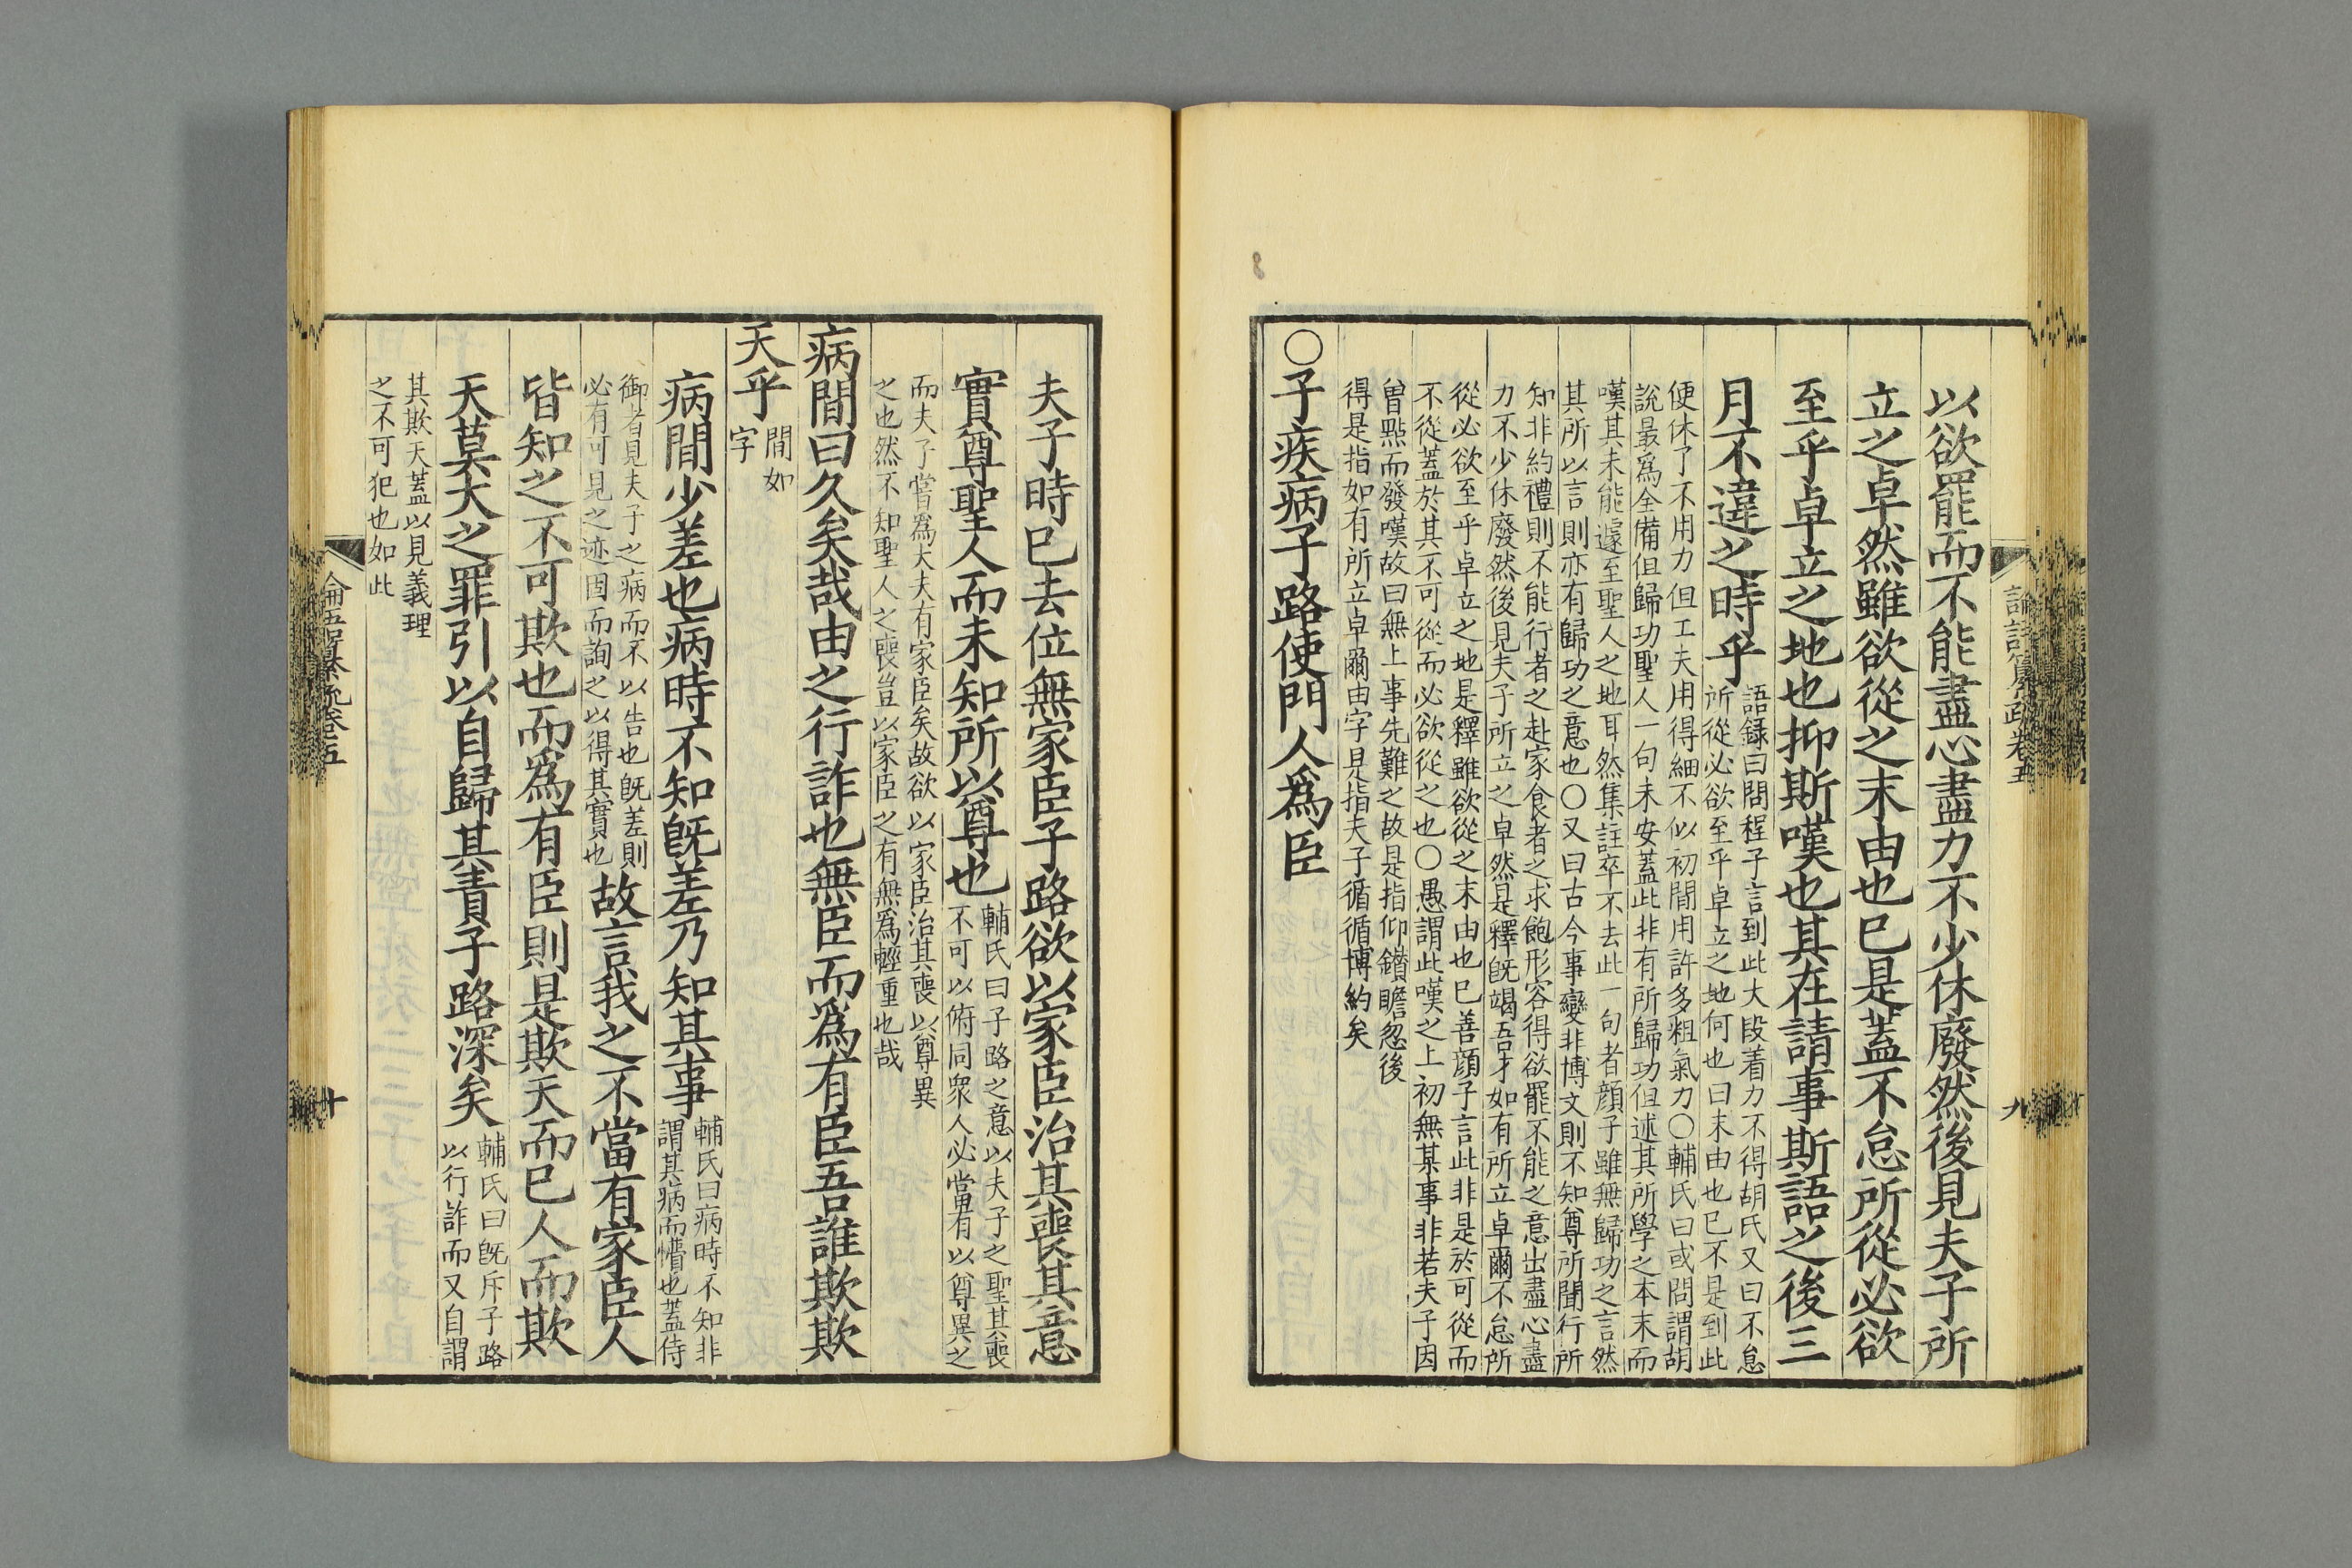 以欲罷而不能盡心盡力不少休廢然後見夫子所
立之卓然雖欲從之末由也巳是蓋不怠所從必欲
至乎卓立之地也抑斯嘆也其在請事斯語之後三
月不違之時乎
語録曰問程子言到此大段着力不得胡氏又曰不怠
所從必欲至乎卓立之地何也曰末由也巳不是到此
便休了不用力但工夫用得細不似初間用許多粗氣力○輔氏曰或問謂胡
說最爲全備但歸功聖人一句未安蓋此非有所歸功但述其所學之本末而
嘆其未能遽至聖人之地耳然集註卒不去此一句者顔子雖無歸功之言然
其所以言則亦有歸功之意也○又曰古今事變非博文則不知尊所聞行所
知非約禮則不能行者之赴家食者之求飽形容得欲罷不能之意出盡心盡
力不少休廢然後見夫子所立之卓然是釋旣竭吾才如有所立卓爾不怠所
從必欲至乎卓立之地是釋雖欲從之末由也巳善顔子言此非是於可從而
不從蓋於其不可從而必欲從之也○愚謂此嘆之上初無某事非若夫子因
曽點而發嘆故曰無上事先難之故是指仰鑽瞻忽後
得是指如有所立卓爾由字是指夫子循循博約矣
○子疾病子路使門人爲臣
論語纂疏卷五
九
夫子時巳去位無家臣子路欲以家臣治其喪其意
實尊聖人而未知所以尊也
輔氏曰子路之意以夫子之聖其喪
不可以俯同衆人必當有以尊異之
而夫子嘗爲大夫有家臣矣故欲以家臣治其喪以尊異
之也然不知聖人之喪豈以家臣之有無爲輕重也哉
病間曰久矣哉由之行詐也無臣而爲有臣吾誰欺欺
天乎
間如
字
病間少差也病時不知旣差乃知其事
輔氏曰病時不知非
謂其病而懵也蓋侍
御者見夫子之病而不以告也旣差則
必有可見之迹因而詢之以得其實也
故言我之不當有家臣人
皆知之不可欺也而爲有臣則是欺天而巳人而欺
天莫大之罪引以自歸其責子路深矣
輔氏曰旣斥子路
以行詐而又自謂
其欺天蓋以見義理
之不可犯也如此
論語纂疏卷五
十